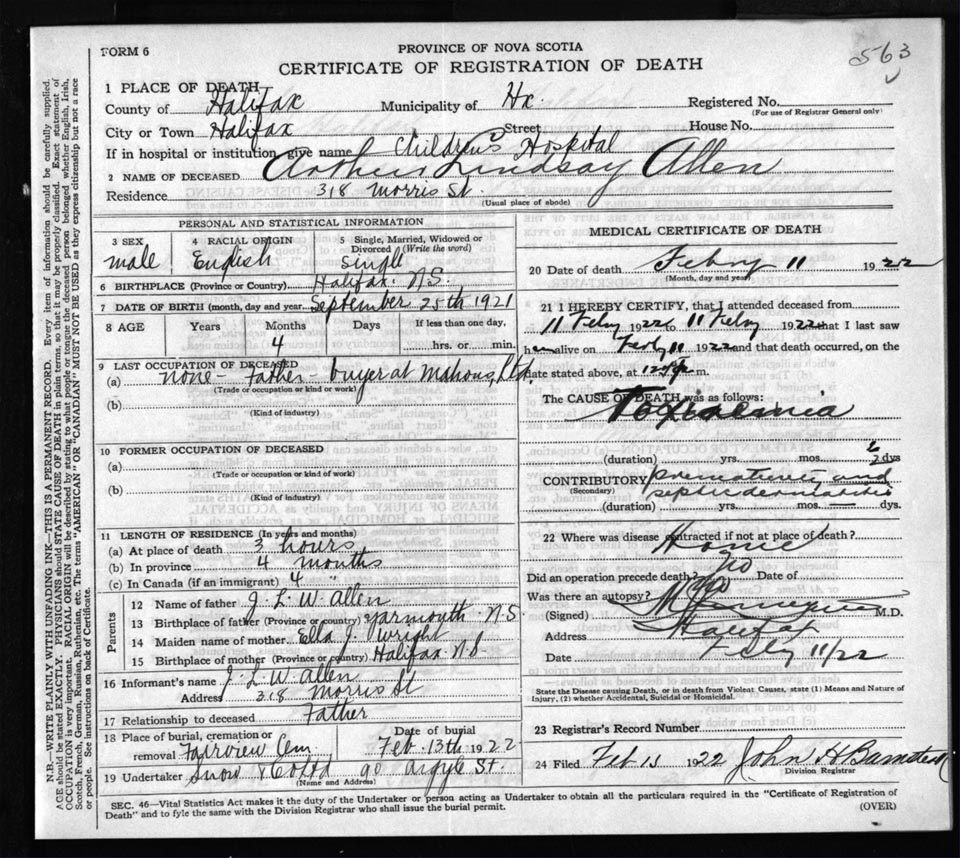 FORM 6
PROVINCE OF NOVA SCOTIA
563
CERTIFICATE OF REGISTRATION OF DEATH
1 PLACE OF DEATH
County of Halifax Municipality of Hx. Registered No.
(For use of Registrar General only)
City or Town Halifax Street House No.
If in hospital or institution, give name Children's Hospital
2 NAME OF DECEASED Arthur Lindsay Allen
Residence 318 Morris St.
(Usual place of abode)
PERSONAL AND STATISTICAL INFORMATION
3 SEX 4 RACIAL ORIGIN 5 Single, Married, Widowed or Divorced (Write the word)
male English Single
6 BIRTHPLACE (Province or Country) Halifax. N.S.
7 DATE OF BIRTH (month, day and year) September 25th 1921
8 AGE Years Months Days If less than one day,
4 hrs. or min.
9 LAST OCCUPATION OF DECEASED
(a) none - Father - buyer at
(Trade or occupation or kind of work)
(b)
(Kind of industry)
10 FORMER OCCUPATION OF DECEASED
(a)
(Trade or occupation or kind of work)
(b)
(Kind of industry)
11 LENGTH OF RESIDENCE (In years and months)
(a) At place of death 3 hours
(b) In province 4 months
(c) In Canada (if an immigrant) 4 "
Parents
12 Name of father J. L. W. Allen
13 Birthplace of father (Province or country) Yarmouth N.S
14 Maiden name of mother Ella J. Wright
15 Birthplace of mother (Province or country) Halifax N.S.
16 Informant's name J. L. W. Allen
Address 318 Morris St
17 Relationship to deceased Father
18 Place of burial, cremation or removal Fairview Cem Date of burial Feb. 13th 1922
19 Undertaker Snow & 90 Argyle St.
(Name and Address)
MEDICAL CERTIFICATE OF DEATH
20 Date of death Febry 11 1922
(Month, day and year)
21 I HEREBY CERTIFY, that I attended deceased from
11 Febry 1922 to 11 Febry 1922 that I last saw
h alive on Febry 11 1922 and that death occurred, on the
date stated above, at 12 m.
The CAUSE OF DEATH was as follows:
Toxaemia
(duration) yrs. mos. dys
CONTRIBUTORY prematurity and
(Secondary) septic dermatitis
(duration) yrs. mos. — dys.
22 Where was disease contracted if not at place of death?
Home
Did an operation precede death? no Date of
Was there an autopsy? no
(Signed) M.D.
Address Halifax
Date Feby 11/22
State the Disease causing Death, or in death from Violent Causes, state (1) Means and Nature of
Injury, (2) whether Accidental, Suicidal or Homicidal.
23 Registrar's Record Number
24 Filed Feb 15 1922 John H Barnstead
Division Registrar
SEC. 46—Vital Statistics Act makes it the duty of the Undertaker or person acting as Undertaker to obtain all the particulars required in the "Certificate of Registration of
Death" and to fyle the same with the Division Registrar who shall issue the burial permit.
(OVER)
N.B.—WRITE PLAINLY WITH UNFADING INK—THIS IS A PERMANENT RECORD. Every item of information should be carefully supplied.
AGE should be stated EXACTLY. PHYSICIANS should STATE CAUSE OF DEATH in plain terms, so that it may be properly classified. Exact statement of
OCCUPATION is very important. RACIAL ORIGIN will be described by stating to what people or tongue the deceased person belonged whether English, Irish,
Scotch, French, German, Russian, Ruthenian, etc. The terms "AMERICAN" OR "CANADIAN" MUST NOT BE USED as they express citizenship but not a race
or people. See instructions on back of Certificate.